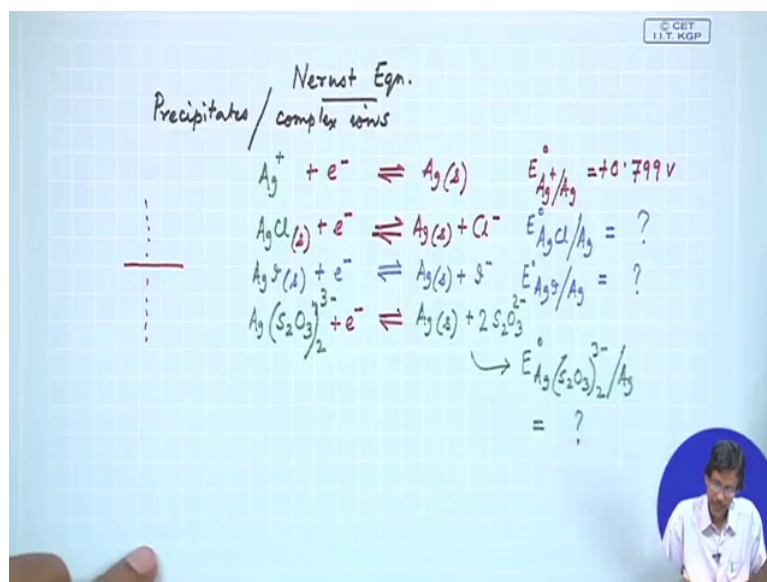 © CET
I.I.T. KGP
Nernst Eqn.
Precipitates / complex ions
Ag⁺ + e⁻ ⇌ Ag(s) E°Ag⁺/Ag = +0.799 V
AgCl(s) + e⁻ ⇌ Ag(s) + Cl⁻ E°AgCl/Ag = ?
AgI(s) + e⁻ ⇌ Ag(s) + I⁻ E°AgI/Ag = ?
Ag(S₂O₃)₂³⁻ + e⁻ ⇌ Ag(s) + 2 S₂O₃²⁻
→ E°Ag(S₂O₃)₂³⁻/Ag
= ?